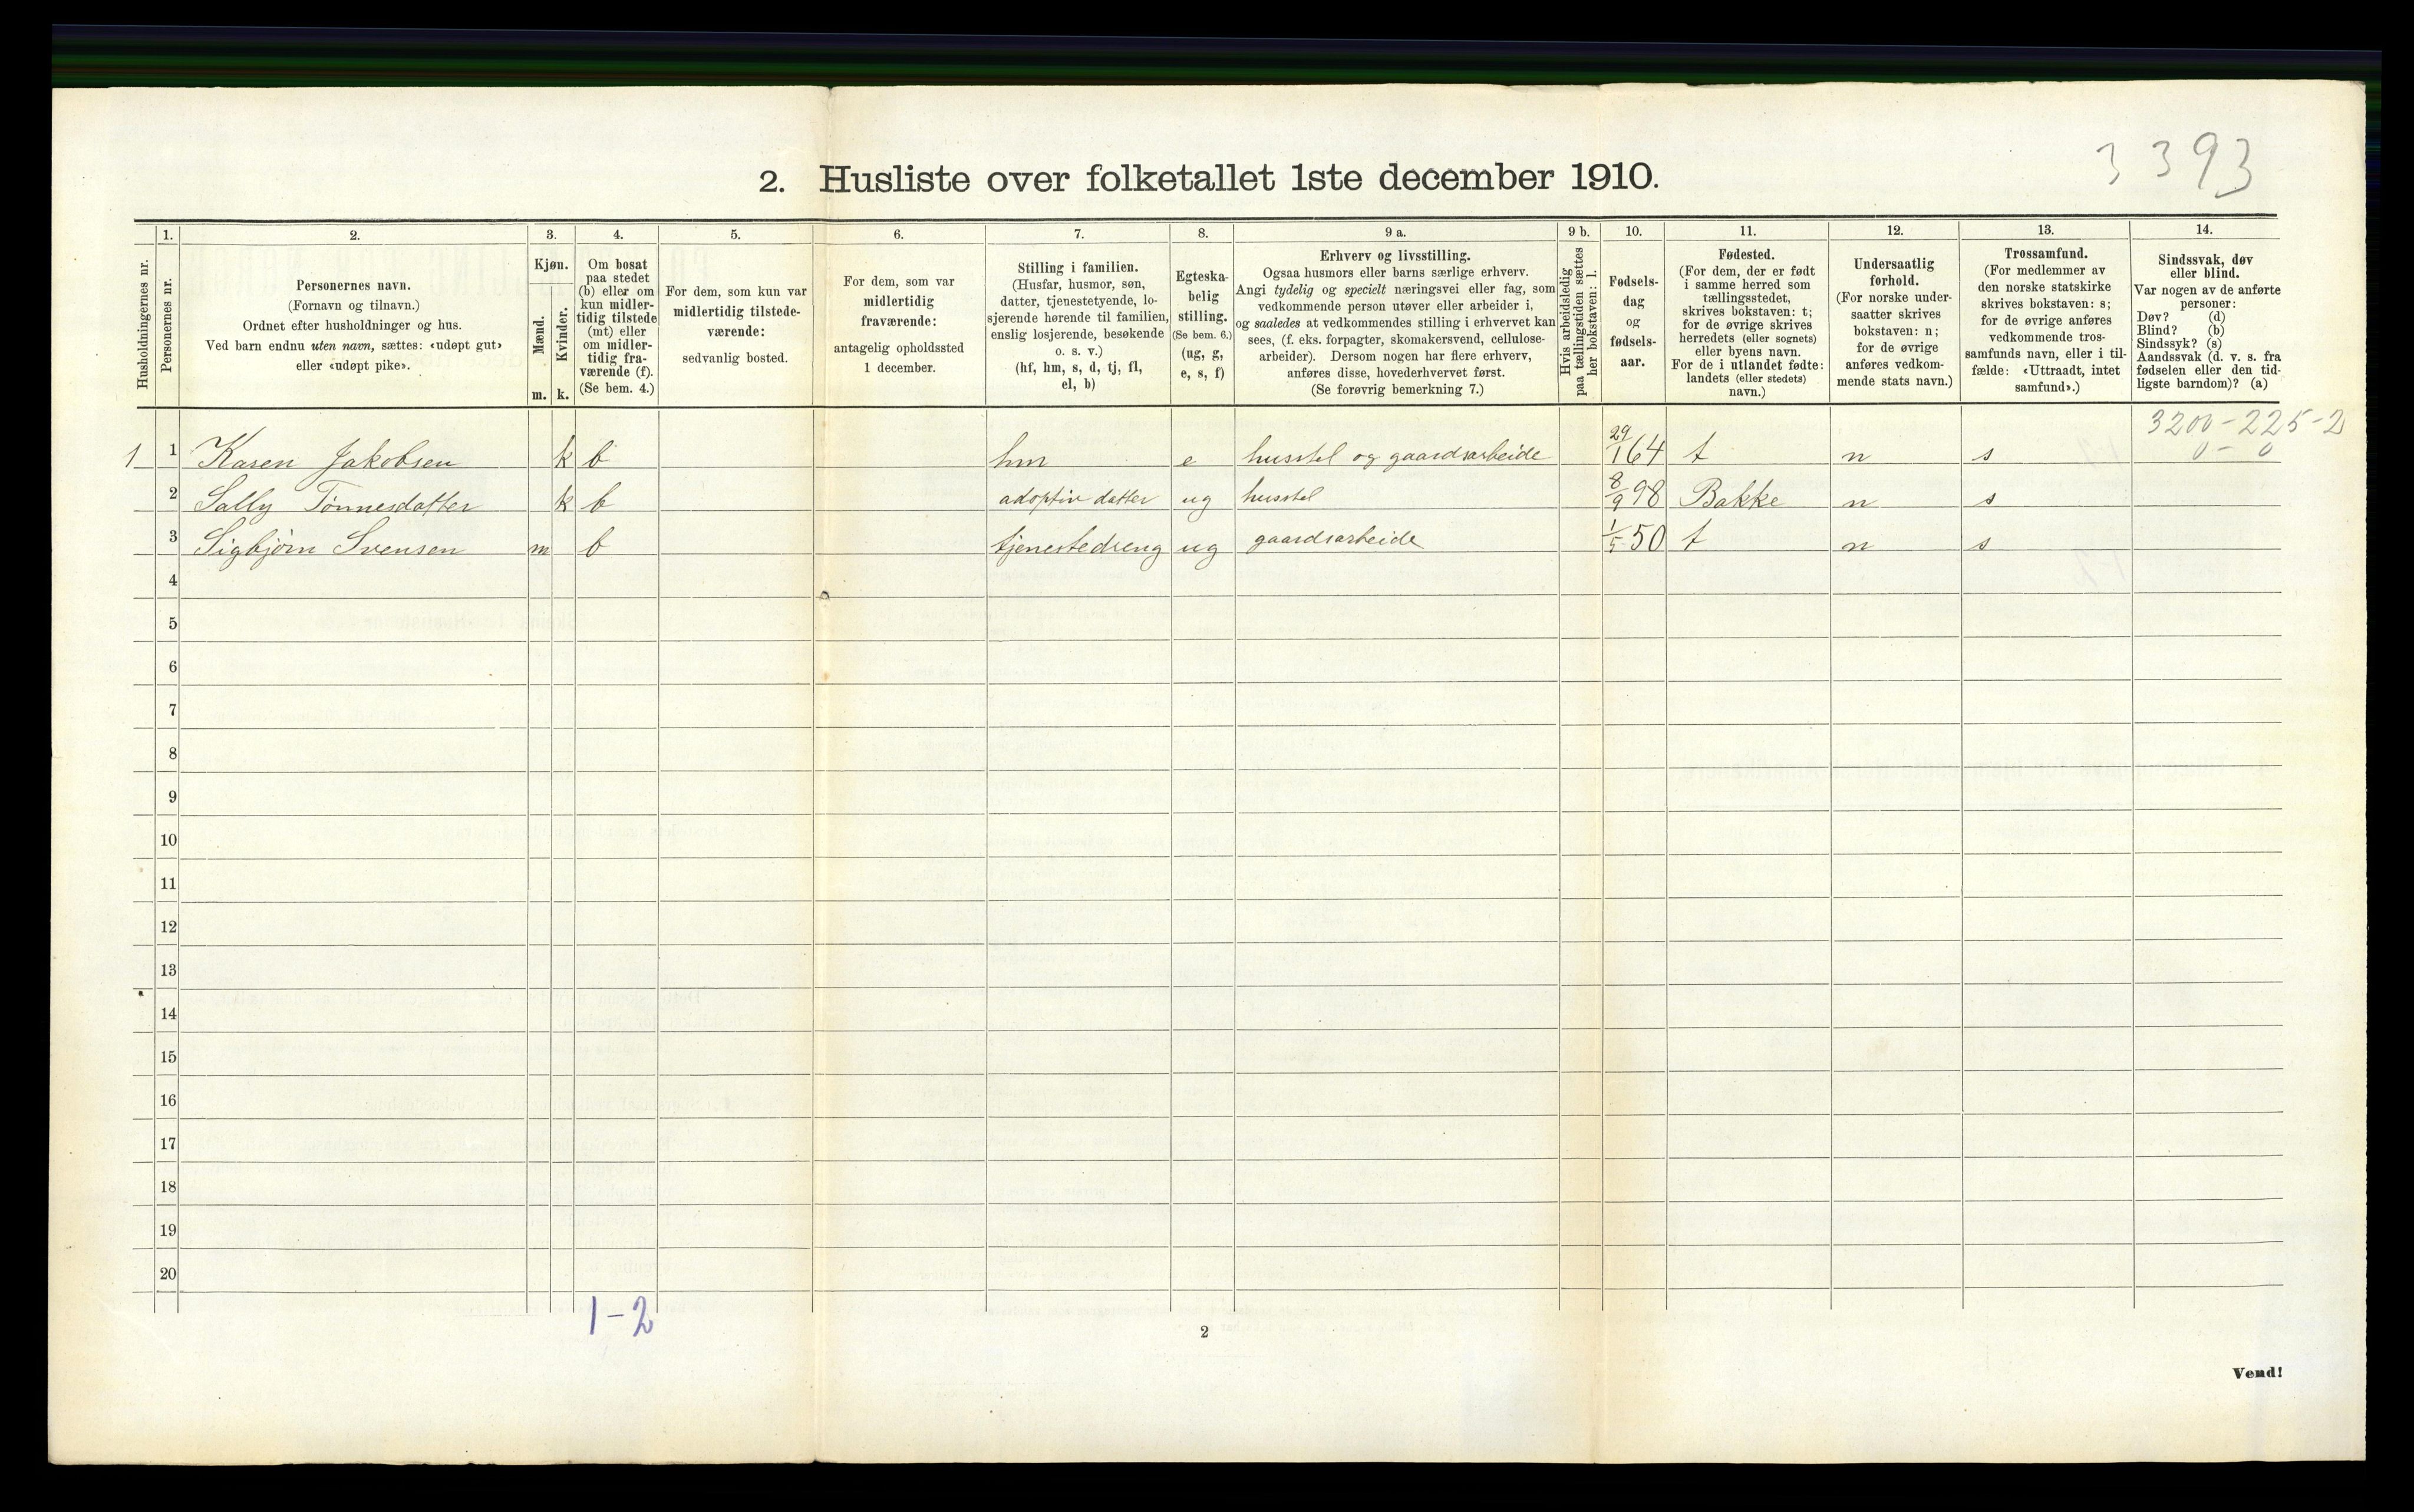 3393
2. Husliste over folketallet 1ste december 1910.
Husholdningernes nr.
1.
Personernes nr.
2.
Personernes navn.
(Fornavn og tilnavn.)
Ordnet efter husholdninger og hus.
Ved barn endnu uten navn, sættes: «udøpt gut»
eller «udøpt pike».
3.
Kjøn.
Mænd.
Kvinder.
m. k.
4.
Om bosat
paa stedet
(b) eller om
kun midler-
tidig tilstede
(mt) eller
om midler-
tidig fra-
værende (f).
(Se bem. 4.)
5.
For dem, som kun var
midlertidig tilstede-
værende:
sedvanlig bosted.
6.
For dem, som var
midlertidig
fraværende:
antagelig opholdssted
1 december.
7.
Stilling i familien.
(Husfar, husmor, søn,
datter, tjenestetyende, lo-
sjerende hørende til familien,
enslig losjerende, besøkende
o. s. v.)
(hf, hm, s, d, tj, fl,
el, b)
8.
Egteska-
belig
stilling.
(Se bem. 6.)
(ug, g,
e, s, f)
9 a.
Erhverv og livsstilling.
Ogsaa husmors eller barns særlige erhverv.
Angi tydelig og specielt næringsvei eller fag, som
vedkommende person utøver eller arbeider i,
og saaledes at vedkommendes stilling i erhvervet kan
sees, (f. eks. forpagter, skomakersvend, cellulose-
arbeider). Dersom nogen har flere erhverv,
anføres disse, hovederhvervet først.
(Se forøvrig bemerkning 7.)
9 b.
Hvis arbeidsledig
paa tællingstiden sættes
her bokstaven: l.
10.
Fødsels-
dag
og
fødsels-
aar.
11.
Fødested.
(For dem, der er født
i samme herred som
tællingsstedet,
skrives bokstaven: t;
for de øvrige skrives
herredets (eller sognets)
eller byens navn.
For de i utlandet fødte:
landets (eller stedets)
navn.)
12.
Undersaatlig
forhold.
(For norske under-
saatter skrives
bokstaven: n;
for de øvrige
anføres vedkom-
mende stats navn.)
13.
Trossamfund.
(For medlemmer av
den norske statskirke
skrives bokstaven: s;
for de øvrige anføres
vedkommende tros-
samfunds navn, eller i til-
fælde: «Uttraadt, intet
samfund».)
14.
Sindssvak, døv
eller blind.
Var nogen av de anførte
personer:
Døv? (d)
Blind? (b)
Sindssyk? (s)
Aandssvak (d. v. s. fra
fødselen eller den tid-
ligste barndom)? (a)
3200-225-2
0 - 0
1 1 Karen Jakobsen k b hm e husstel og gaardsarbeide 29/1 64 t n s
2 Sally Tønnesdatter k b adoptiv datter ug husstel 8/9 98 Bakke n s
3 Sigbjørn Svensen m b tjenestedreng ug gaardsarbeide 1/5 50 t n s
4
5
6
7
8
9
10
11
12
13
14
15
16
17
18
19
20
1-2
2
Vend!